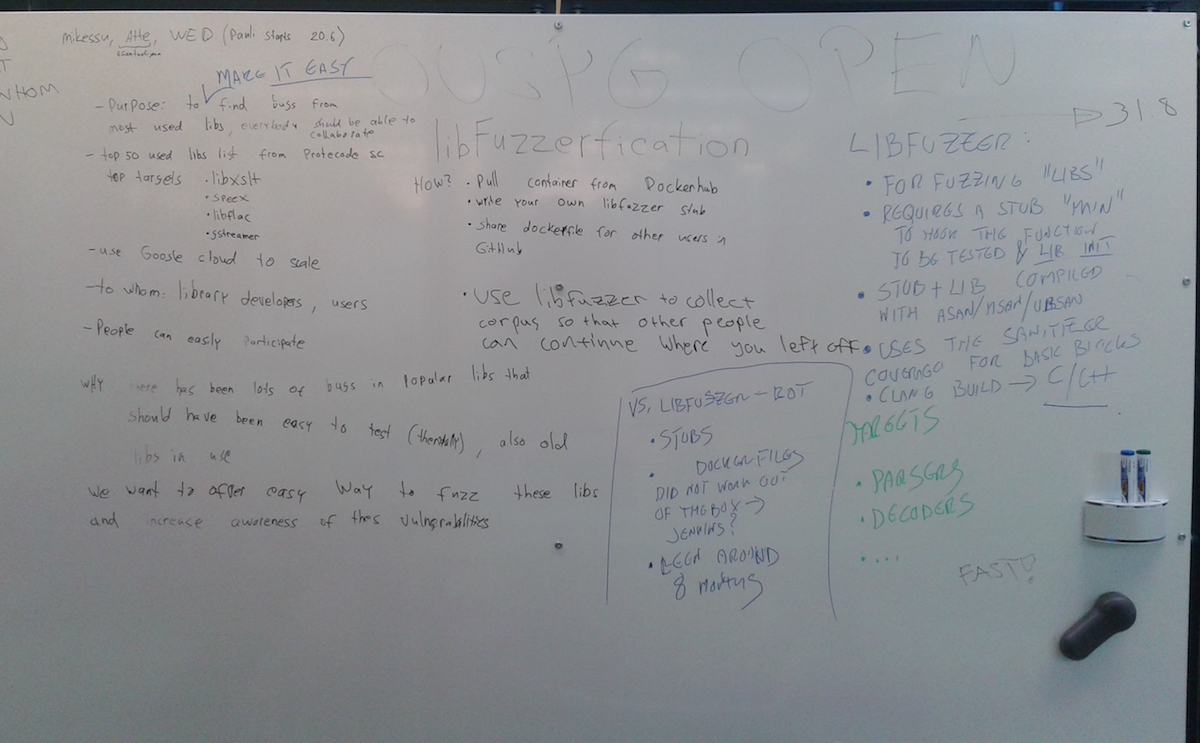 mikessu, Atte, WED (Pauli starts 20.6)
WHOM
MAKE IT EASY
OUSPG OPEN
31.8
- Purpose: to find bugs from
most used libs, everybody should be able to
collaborate
- top 50 used libs list from Protecode SC
top targets
• libxslt
• speex
• libflac
• gstreamer
- use Google cloud to scale
- to whom: library developers, users
- People can easily participate
WHY there has been lots of bugs in popular libs that
should have been easy to test, also old
libs in use
we want to offer easy way to fuzz these libs
and increase awareness of thes vulnerabilities
libFuzzerfication
How? • Pull container from Dockerhub
• write your own libfuzzer stub
• share dockerfile for other users in
GitHub
• Use libfuzzer to collect
corpus so that other people
can continue where you left off
VS, LIBFUSZER-BOT
• STUBS
• DOCKER-FILES
DID NOT WORK OUT
OF THE BOX →
JENKINS?
• BEEN AROUND
8 MONTHS
LIBFUZZER:
• FOR FUZZING "LIBS"
• REQUIRES A STUB "MAIN"
TO HOOK THE FUNCTION
TO BE TESTED & LIB INIT
• STUB + LIB COMPILED
WITH ASAN/MSAN/UBSAN
• USES THE SANITIZER
COVERAGE FOR BASIC BLOCKS
• CLANG BUILD → C/C++
TARGETS
• PARSERS
• DECODERS
• ....
FAST?